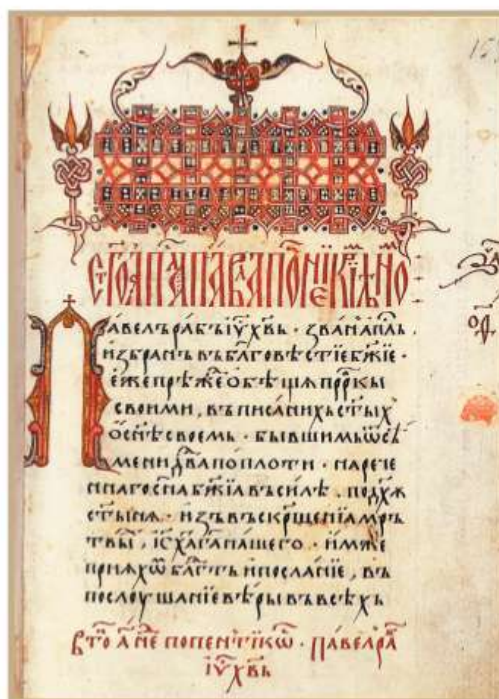 Павелърабъіу҃хв҃ь · званапль ·
избранъвъбл҃говѣстїебж҃їе ·
ежепрѣжеобѣщяпрⷪркы
своими, въписанихьст҃ых
осн҃ѣсвоемь · бывшимьѿсѣ
менидв҃апоплоти · нарече
ннагосн҃абж҃їавъсилѣ . подх҃ѫ
ст҃ынѧ · изъвъскрⷭщенїамръ
твы , іс҃ха҃га҃нашего · имже
прияхѡбл҃гтьипосланїе, въ
послоушанїевѣрывъвсѣхь
попентикѡⷭ · павелра
іу҃хв҃ь